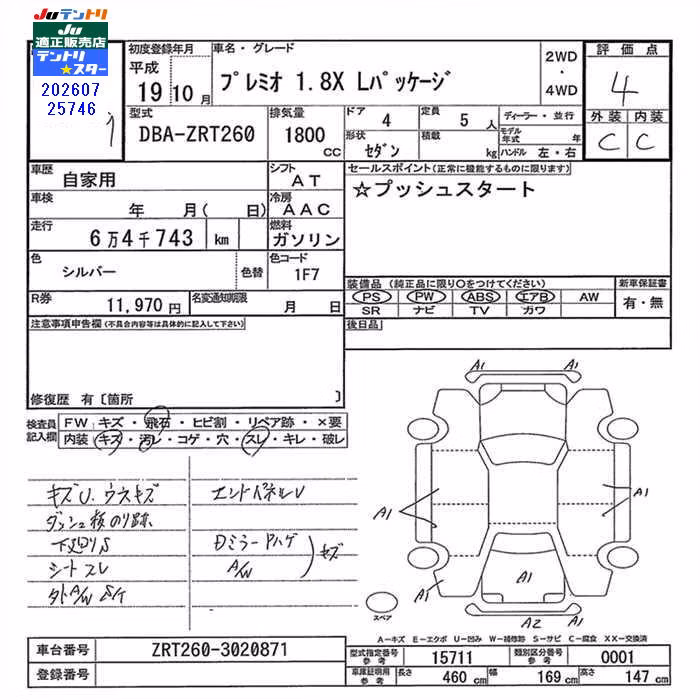 Juテントリ
Ju
適正販売店
テントリ
★スター
202607
25746
初度登録年月
平成
19 10 月
車名・グレード
プレミオ 1.8X Lパッケージ
2WD
・
4WD
評価点
4
外装 内装
C C
型式
DBA-ZRT260
排気量
1800
CC
ドア
4
定員
5 人
形状
セダン
積載
kg
ディーラー・並行
モデル年式 年
ハンドル 左・右
車歴
自家用
シフト
AT
車検
年 月( 日)
冷房
AAC
走行
6万4千743 km
燃料
ガソリン
色
シルバー
色替
色コード
1F7
R券
11,970 円
名変通知期限
月 日
セールスポイント(正常に機能するものに限ります)
☆プッシュスタート
装備品(純正品に限り○をつけてください)
PS PW ABS エアB AW
SR ナビ TV カワ
新車保証書
有・無
後日品
注意事項申告欄(不具合内容等は具体的に記入して下さい)
修復歴 有〔箇所 〕
検査員
記入欄
FW キズ・飛石・ヒビ割・リペア跡・×要
内装 キズ・汚レ・コゲ・穴・スレ・キレ・破レ
キズU.ウスキズ
ダッシュ板のり跡.
下廻りS
シートスレ
エンドパネルU
DミラーPハゲ
A/W
キズ
A1 A1
A1 A1
A1
A1 A2 A1
スペア
A−キズ E−エクボ U−凹み W−補修跡 S−サビ C−腐食 XX−交換済
車台番号
ZRT260-3020871
登録番号
型式指定番号
参考
15711
類別区分番号
参考
0001
車庫証明用
参考
長さ
460 cm
幅
169 cm
高さ
147 cm